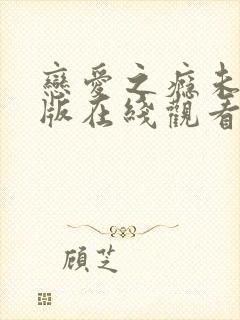 戀愛之癡未
版在綫觀看
顧芝